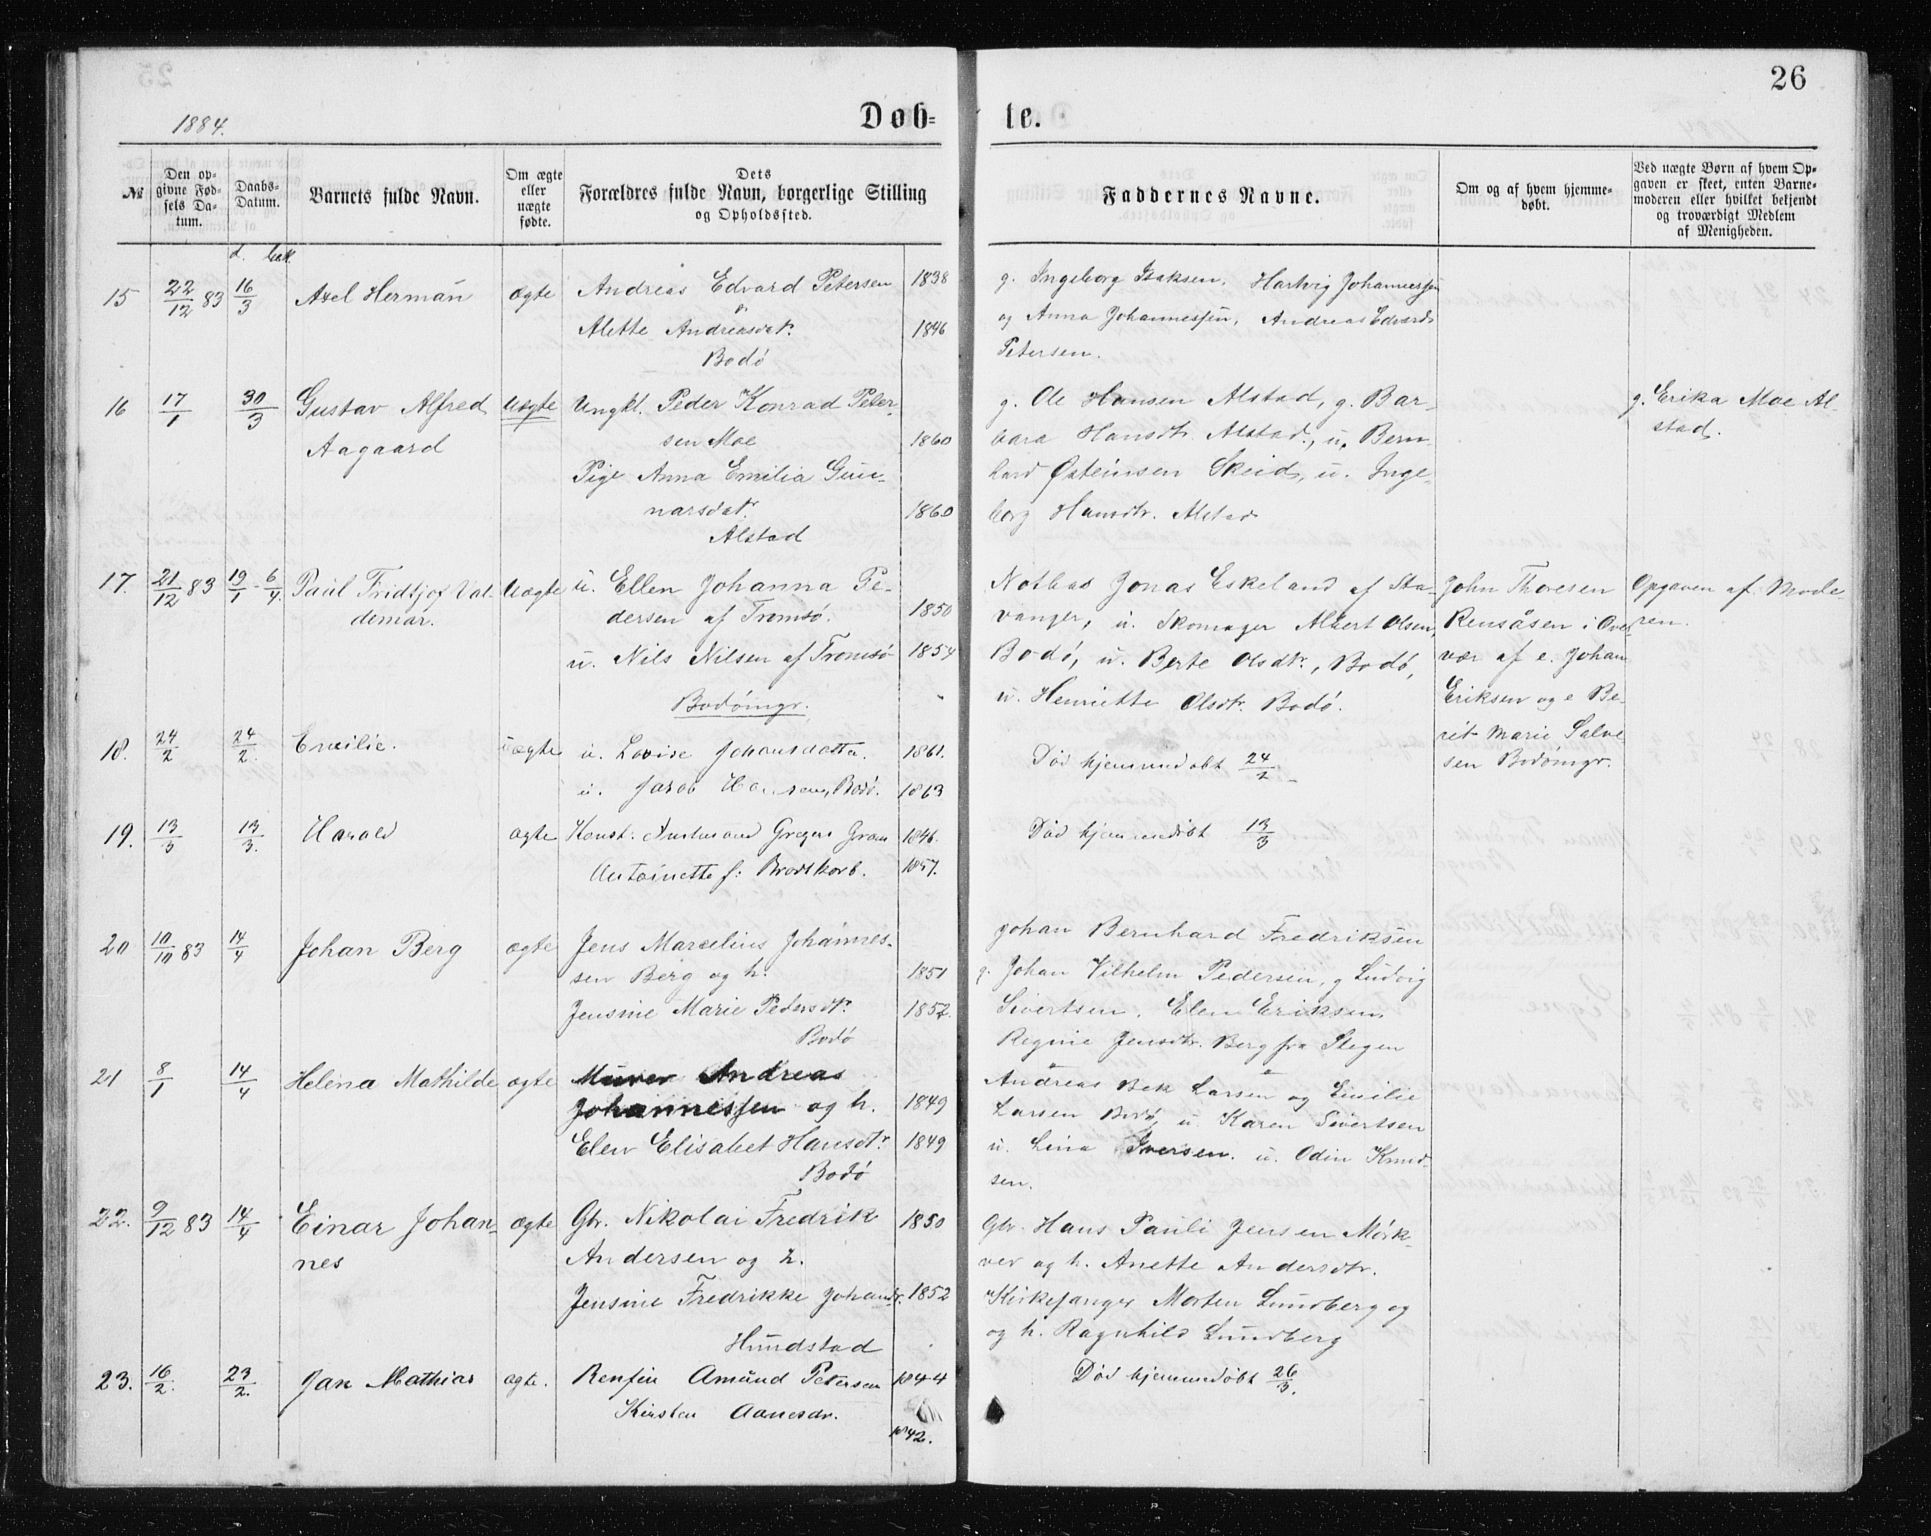 26
1884.
Døb-
te.
№
Den op-
givne Fød-
sels Da-
tum.
Daabs-
Datum.
Barnets fulde Navn.
Om ægte
eller
uægte
fødte.
Dets
Forældres fulde Navn, borgerlige Stilling
og Opholdssted.
Faddernes Navne.
Om og af hvem hjemme-
døbt.
Ved uægte Børn af hvem Op-
gaven er skeet, enten Barne-
moderen eller hvilket bekjendt
og troværdigt Medlem
af Menigheden.
15 22/12 83 16/3 Axel Herman ægte Andreas Edvard Petersen 1838
Alette Andreasdatr. 1846
Bodø
g. Ingeborg Isaksen, Hartvig Johannessen
og Anna Johannessen, Andreas Edvards
Petersen.
16 17/1 30/3 Gustav Alfred uægte Ungkl. Peder Konrad Peter-
Aagaard
sen Moe 1860
Pige Anna Emilia Gun-
narsdatr. 1860
Alstad
g. Ole Hansen Alstad, g. Bar-
bara Hansdtr. Alstad, u. Bern
hard Østeinsen Skeid, u. Inge-
borg Hansdtr. Alstad
g. Erika Moe Al-
stad.
17. 21/12 83 19/1 - 6/4. Paul Fridtjof Val- Uægte u. Ellen Johanna Pe-
demar.
dersen af Tromsø. 1850
u. Nils Nilsen af Tromsø 1854
Bodømgr.
Jonas Eskeland af Sta-
vanger, u. Skomager Albert Olsen,
Bodø, u. Berte Olsdtr., Bodø,
u. Henriette Olsdtr. Bodø.
John Thoresen
Rensåsen i Over
vær af e. Johan
Eriksen og e Be-
rit Marie Salve
sen Bodømgr.
Opgaven af Mode-
ren.
18. 24/2 24/2. Emilie. uægte u. Lovise Johansdatter. 1861.
u. Jacob Bodø. 1863
Død hjemmedøbt 24/2
19. 13/3 13/3. Harald ægte Konst. Gregers Gram 1846.
Antoinette f: Brodtkorb. 1857.
Død hjemmedøbt 13/3
20 10/10 83 14/4 Johan Berg ægte Jens Marcelius Johannes-
sen Berg og h. 1851
Jensine Marie Pedersdtr. 1852.
Bodø
Johan Bernhard Fredriksen
g. Johan Vilhelm Pedersen, g Ludvig
Sivertsen, Elen Eriksen,
Regine Jensdtr. Berg fra Stegen
21 8/1 14/4 Helena Mathilde ægte Murer Andreas
Johannessen og h. 1849
Elen Elisabet Hansdtr 1849
Bodø
Andreas Bek Larsen og Emilie
Larsen Bodø, u. Karen Sivertsen
u. Lina Iversen. u. Odin Knud-
sen.
22. 9/12 83 14/4 Einar Johan- ægte Gbr. Nikolai Fredrik 1850
nes
Andersen og h.
Jensine Fredrikke Johansdr. 1852
Hundstad
Gbr. Hans Pauli Jensen Mørk-
ver og h. Anette Andersdtr.
Kirkesanger Morten Lundberg og
og h. Ragnhild Lundberg
23. 16/2. 23/2. Jan Mathias ægte. Amund Petersen 1844
Kirsten Aanesdr.
1842.
Død hjemmedøbt 26/3.